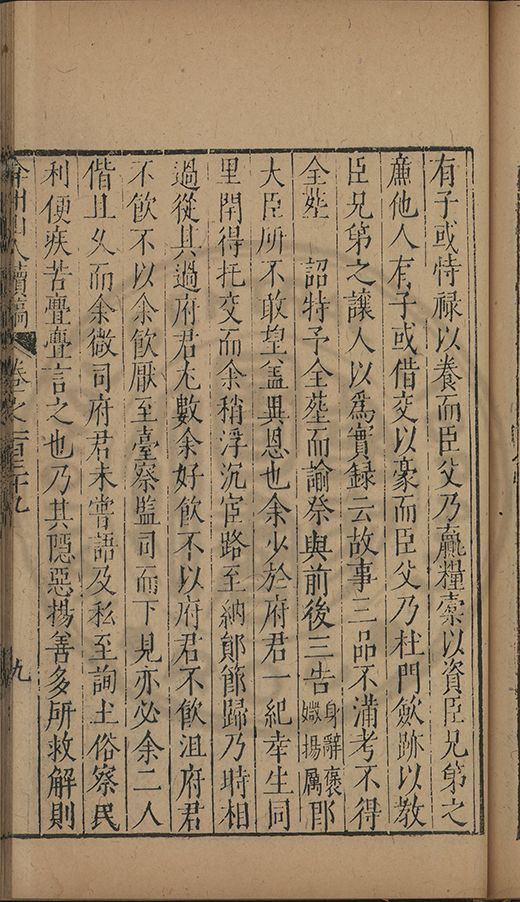 有子或恃祿以養而臣父乃羸糧橐以資臣兄第之
廉他人有子或借交以豪而臣父乃杜門斂跡以教
臣兄第之讓人以爲實録云故事三品不滿考不得
全塟　詔特予全塟而諭祭與前後三告身辭褒媺揚厲郎
大臣所不敢望盖異恩也余少於府君一紀幸生同
里閈得托交而余稍浮沉宦路至納鄖節歸乃時相
過從其過府君尤數余好飲不以府君不飲沮府君
不飲不以余飲厭至臺察監司而下見亦必余二人
偕且久而余微司府君未嘗語及私至詢土俗察民
利便疾苦亹亹言之也乃其隱惡揚善多所救解則
弇州山人續稿　卷之一百三十九　九